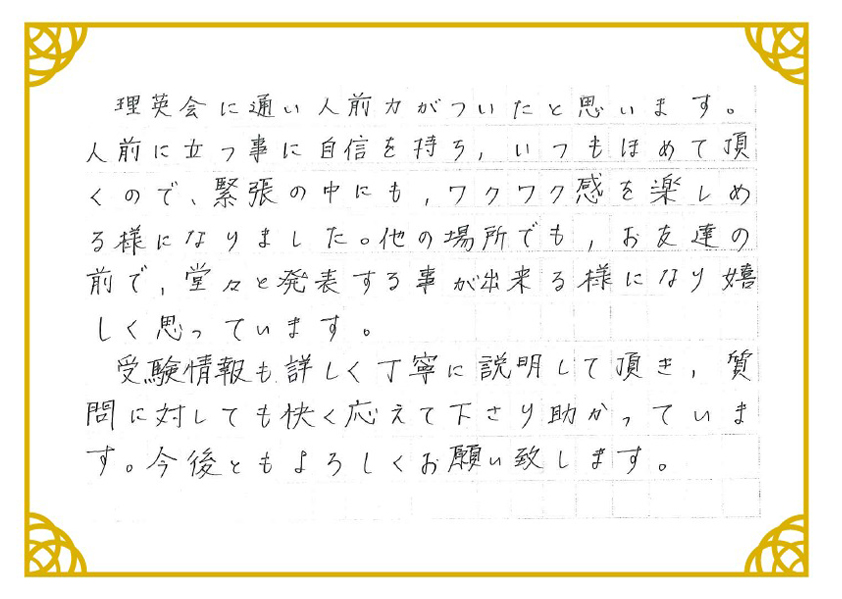 理英会に通い人前力がついたと思います。
人前に立つ事に自信を持ち,いつもほめて頂
くので、緊張の中にも,ワクワク感を楽しめ
る様になりました。他の場所でも,お友達の
前で,堂々と発表する事が出来る様になり嬉
しく思っています。
受験情報も詳しく丁寧に説明して頂き,質
問に対しても快く応えて下さり助かっていま
す。今後ともよろしくお願い致します。